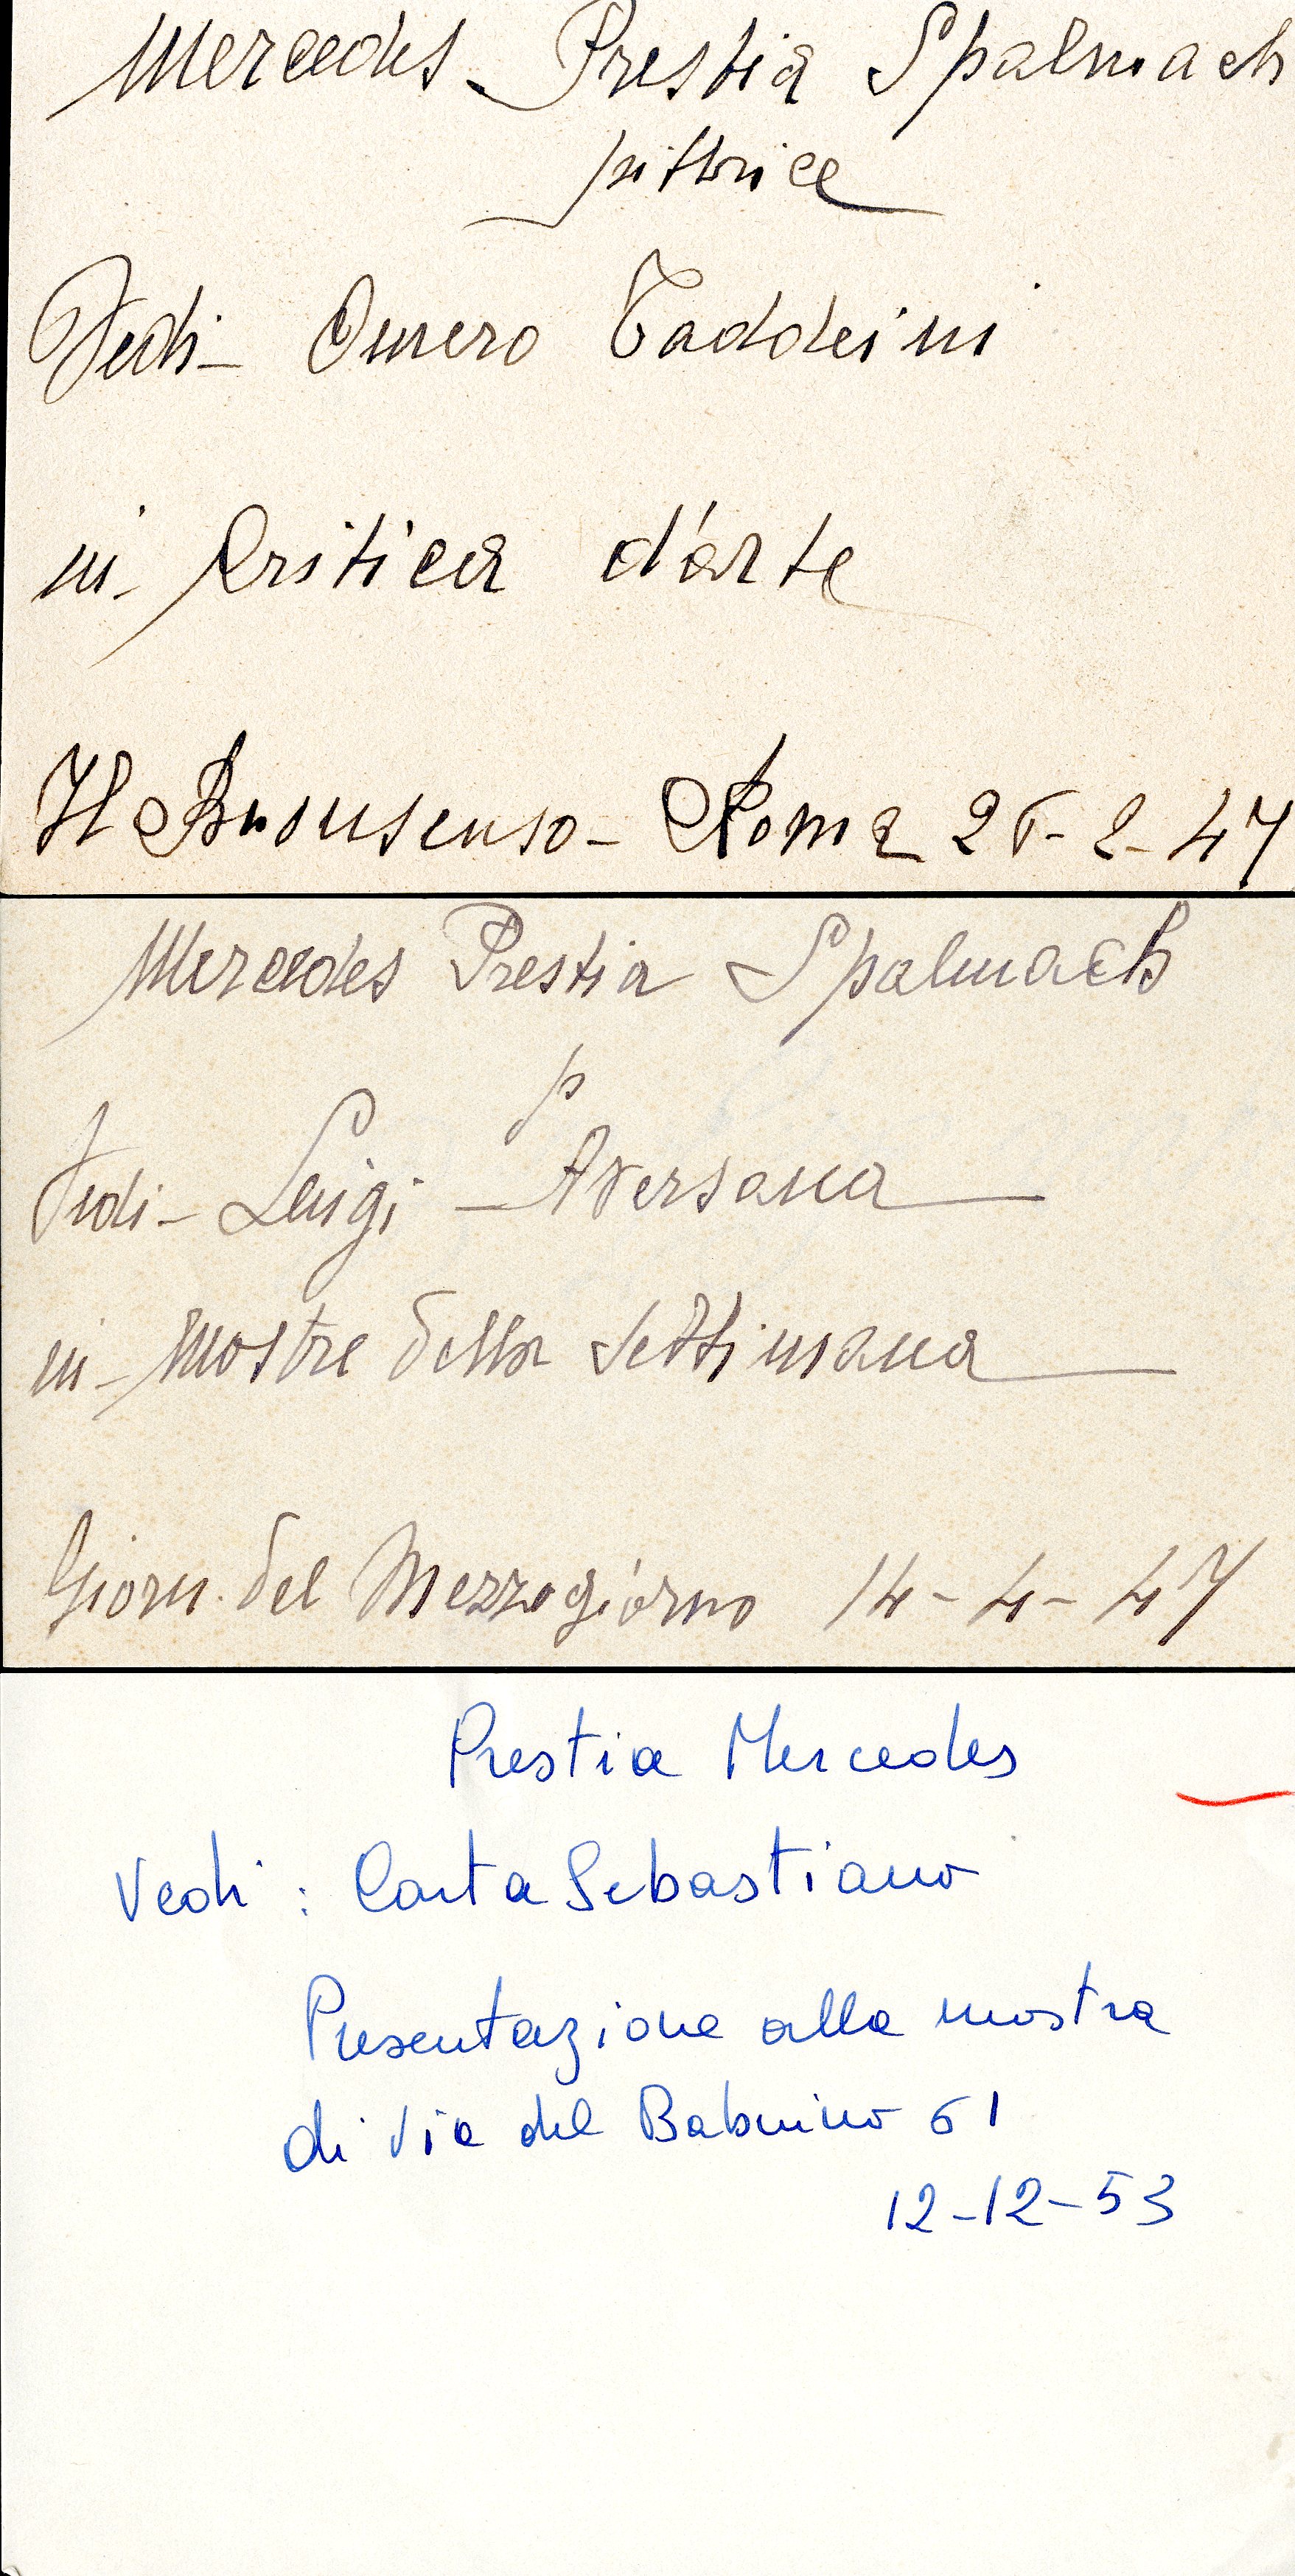 Mercedes Prestia Spalmach
pittrice
Vedi - Omero Taddeini
in - Critica d'arte
Il Buonsenso - Roma 26-2-47
Mercedes Prestia Spalmach
p
Vedi - Luigi Aversana
in - Mostre della Settimana
Giorn. del Mezzogiorno 14-4-47
Prestia Mercedes
Vedi : Carta Sebastiano
Presentazione alla mostra
di Via del Babuino 61
12-12-53